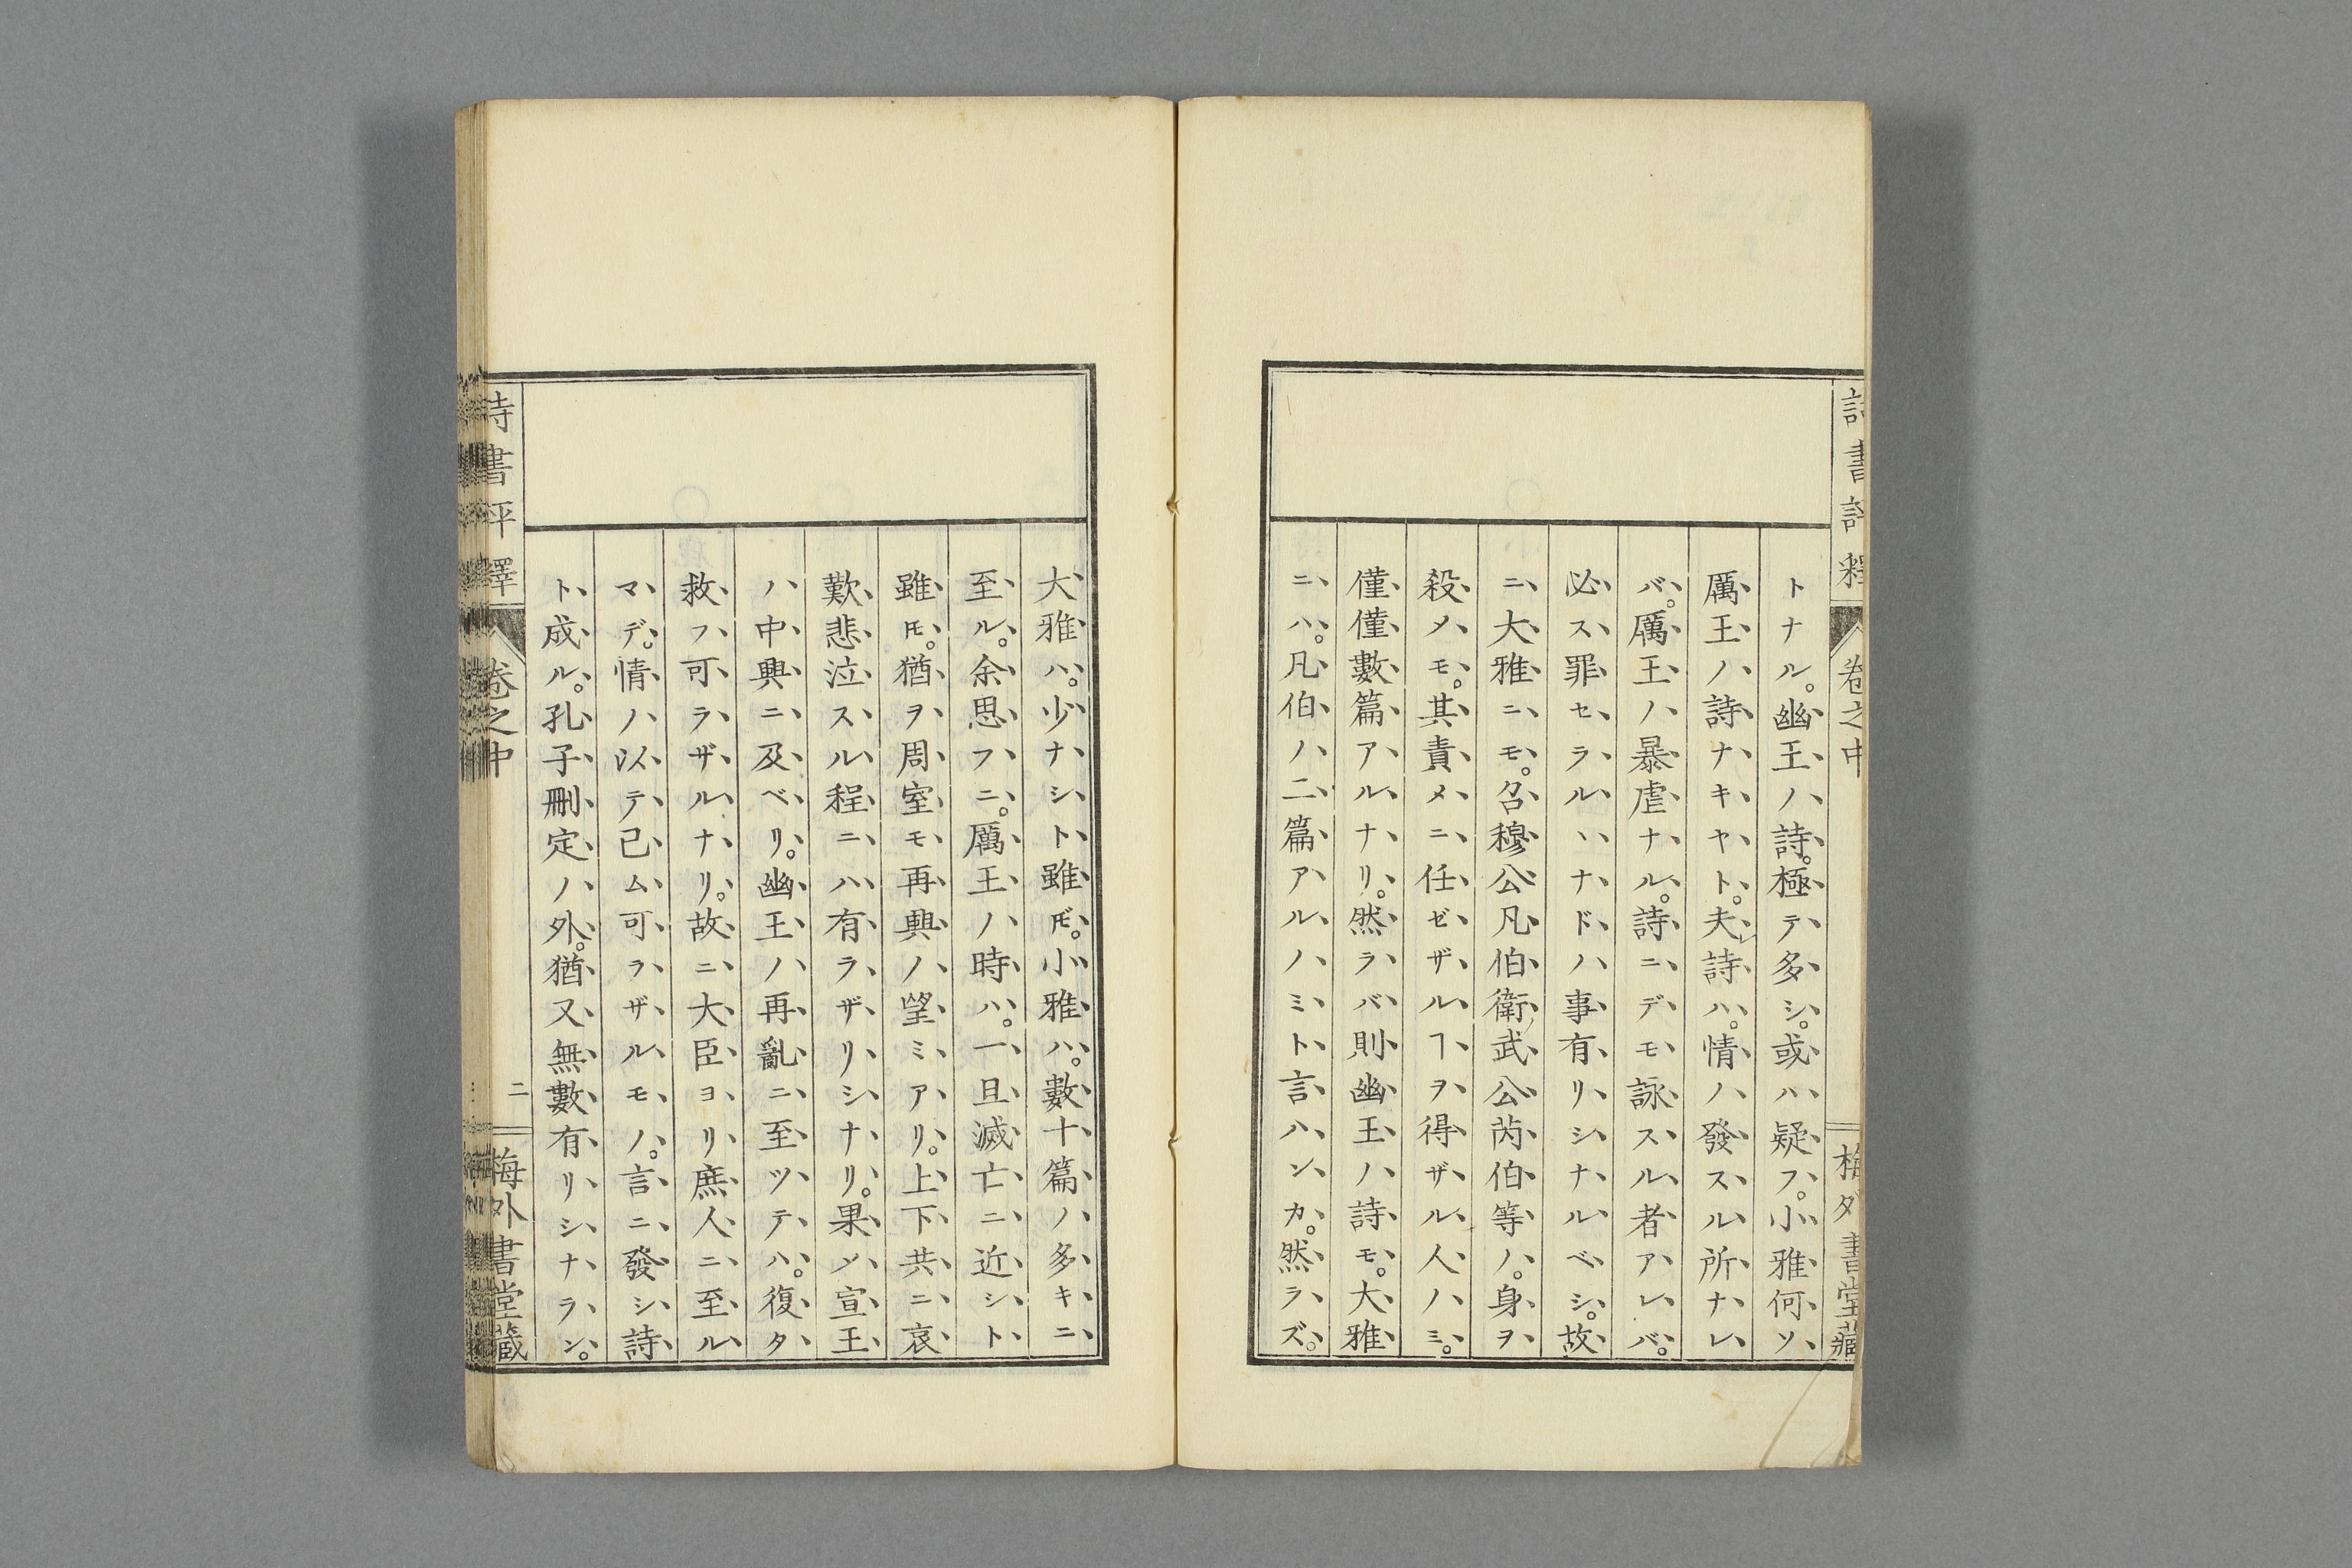 詩書評釋 卷之中 梅外書堂藏
トナル。幽王ノ詩。極テ多シ。或ハ疑フ。小雅何ソ
厲王ノ詩ナキヤト。夫詩ハ。情ノ發スル所ナレ
バ。厲王ノ暴虐ナル。詩ニデモ詠スル者アレバ。
必ス罪セラルヽナドハ事有リシナルベシ。故
ニ大雅ニモ。召穆公凡伯衛武公芮伯等ノ。身ヲ
殺メモ。其責メニ任ゼザルヿヲ得ザル人ノミ。
僅僅數篇アルナリ。然ラバ則幽王ノ詩モ。大雅
ニハ。凡伯ノ二篇アルノミト言ハンカ。然ラズ。
大雅ハ。少ナシト雖𪜈。小雅ハ。數十篇ノ多キニ
至ル。余思フニ。厲王ノ時ハ。一旦滅亡ニ近シト
雖𪜈。猶ヲ周室モ再興ノ望ミアリ。上下共ニ哀
歎悲泣スル程ニハ有ラザリシナリ。果メ宣王
ノ中興ニ及ベリ。幽王ノ再亂ニ至ツテハ。復タ
救フ可ラザルナリ。故ニ大臣ヨリ庶人ニ至ル
マデ。情ノ以テ已ム可ラザルモノ。言ニ發シ詩
ト成ル。孔子刪定ノ外。猶又無數有リシナラン。
詩書評釋 卷之中 二 梅外書堂藏